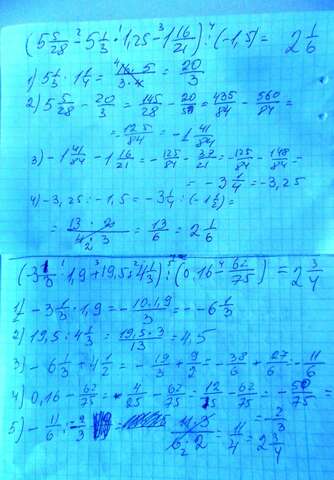 (5 5/28 - 5 1/3 · 1,25 - 1 16/21) : (-1,5) = 2 1/6
1) 5 1/3 · 1 1/4 = 16 · 5 / 3 · 4 = 20/3
2) 5 5/28 - 20/3 = 145/28 - 20/3 = 435/84 - 560/84 =
= 125/84 = -1 41/84
3) -1 41/84 - 1 16/21 = -125/84 - 37/21 = -125/84 - 148/84 =
= -3 1/4 = -3,25
4) -3,25 : -1,5 = -3 1/4 : (-1 1/2) =
= 13 · 2 / 4 · 3 = 13/6 = 2 1/6
(-3 1/3 · 1,9 + 19,5 : 4 1/3) : (0,16 - 62/75) = 2 3/4
1) -3 1/3 · 1,9 = - 10 · 1,9 / 3 = -6 1/3
2) 19,5 : 4 1/3 = 19,5 · 3 / 13 = 4,5
3) -6 1/3 + 4 1/2 = -19/3 + 9/2 = -38/6 + 27/6 = -11/6
4) 0,16 - 62/75 = 4/25 - 62/75 = 12/75 - 62/75 = -50/75 =
= -2/3
5) -11/6 : -2/3 = 11 · 3 / 6 · 2 = 11/4 = 2 3/4